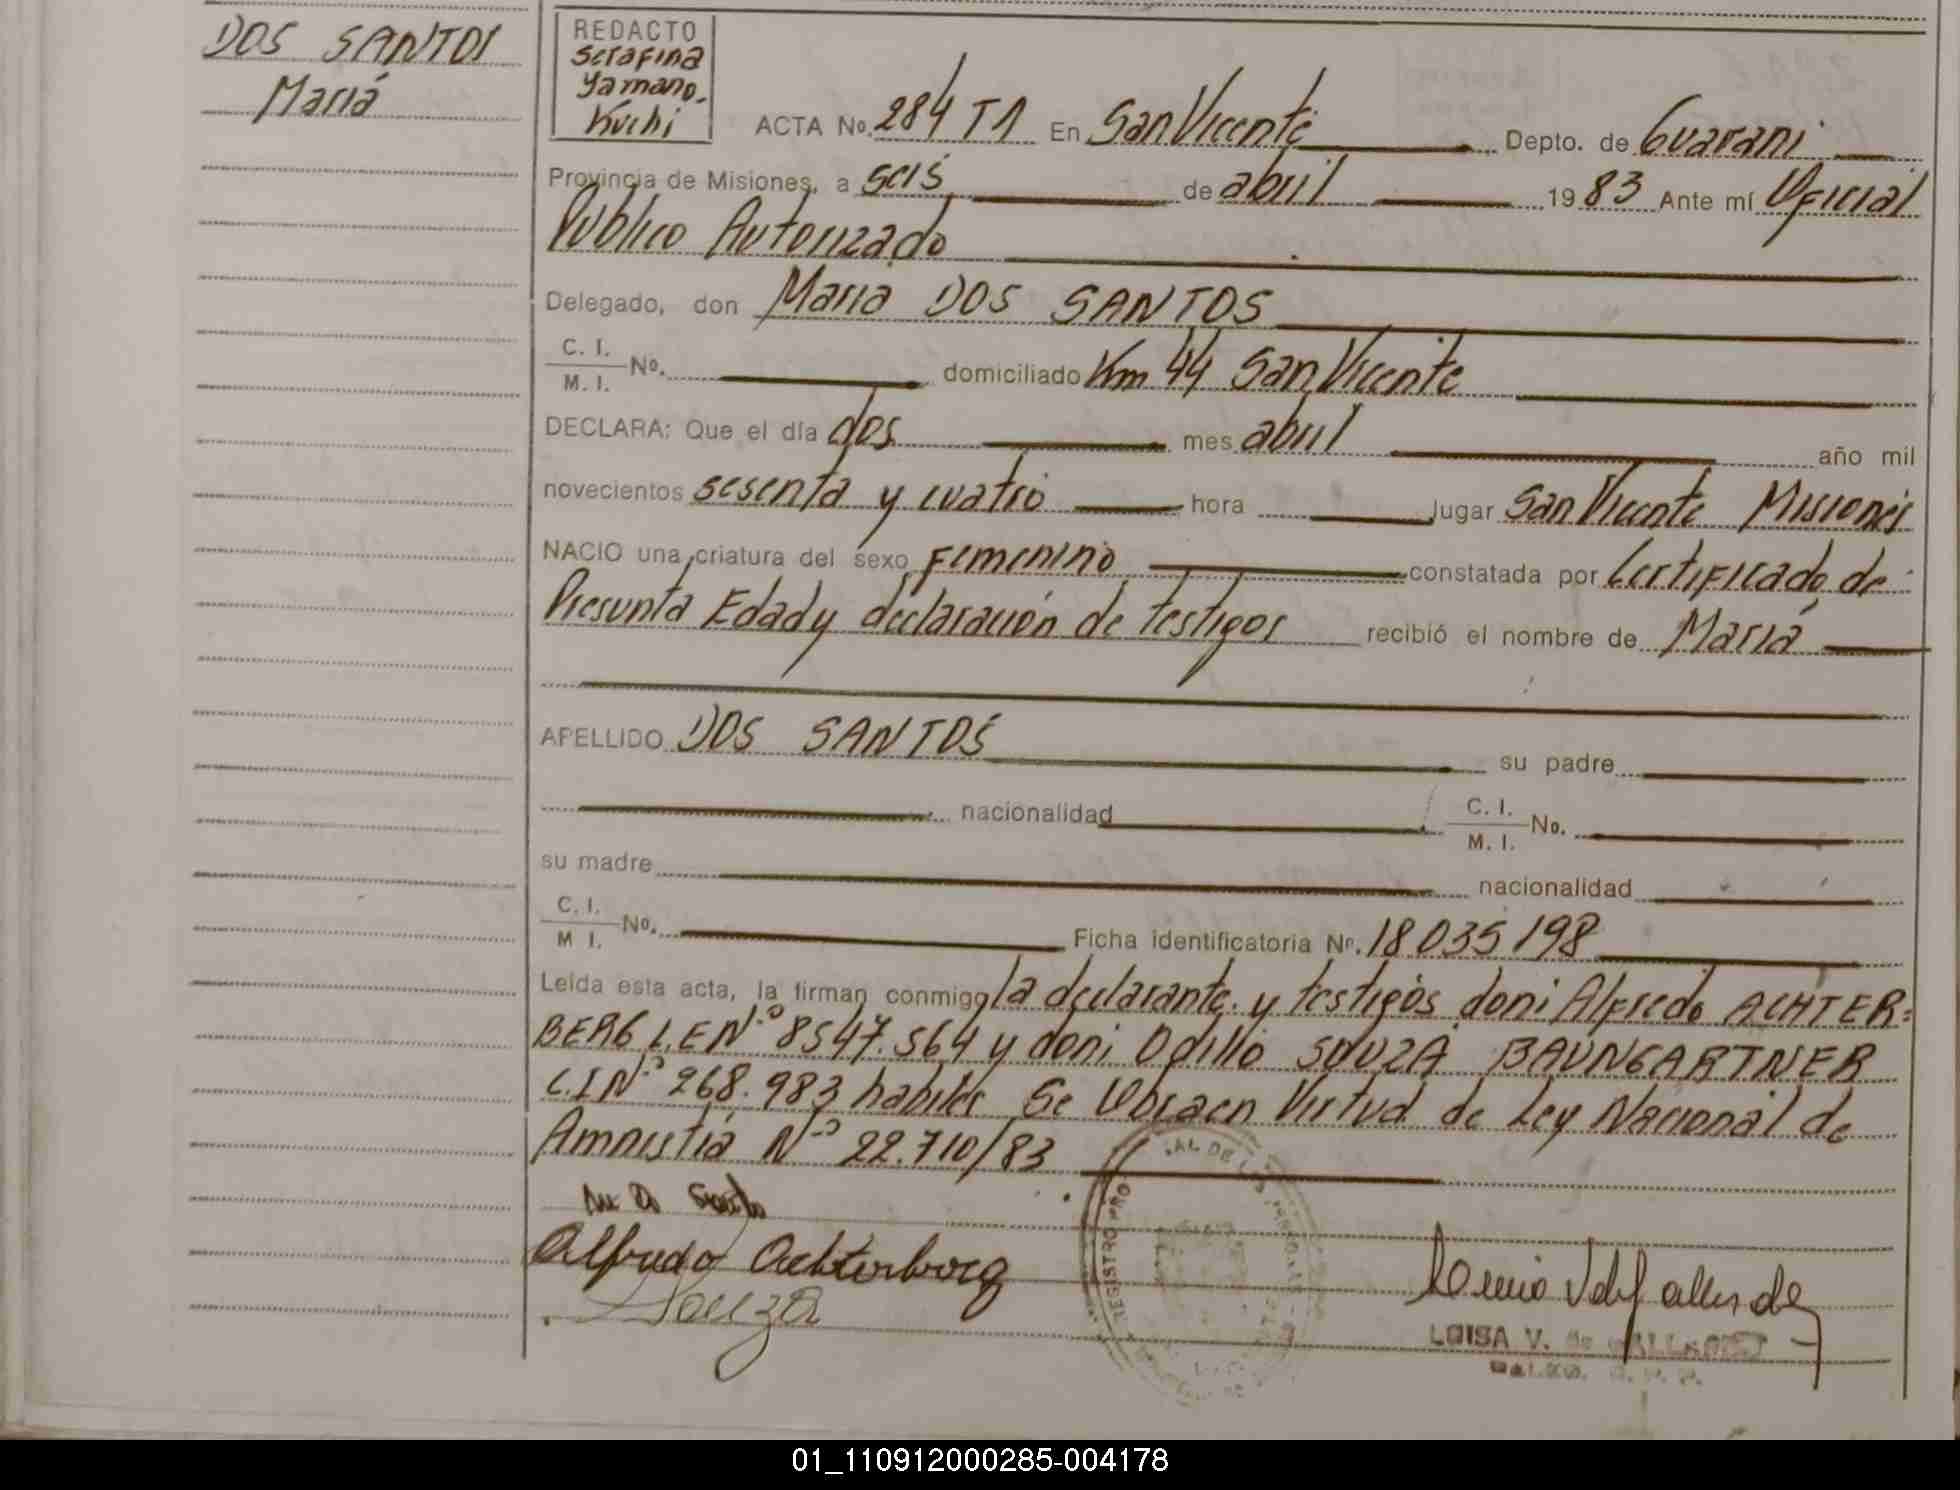 DOS SANTOS
María
REDACTO
Serafina
Yamano.
Kuchi
ACTA No. 284 T1 En San Vicente Depto. de Guarani
Provincia de Misiones, a seis de abril 1983 Ante mí Oficial
Público Autorizado
Delegado, don Maria DOS SANTOS
C. I.
M. I. No. domiciliado Km 44 San Vicente
DECLARA: Que el día dos mes abril año mil
novecientos sesenta y cuatro hora lugar San Vicente Misiones
NACIO una criatura del sexo Femenino constatada por Certificado de
Presunta Edad y declaración de testigos recibió el nombre de María
APELLIDO DOS SANTOS su padre
nacionalidad C. I.
M. I. No.
su madre nacionalidad
C. I.
M I. No. Ficha identificatoria Nº. 18 035 198
Leída esta acta, la firman conmigo la declarante. y testigos don: Alfredo ACHTER=
BERG L.E Nº 8547.564 y don: Odillo SOUZA BAUNGARTNER
C.I Nº 268.983 habiles Se Obra en Virtud de Ley Nacional de
Amnistia Nº 22.710/83
Alfredo Achterberg
Souza
LUISA V. de
01_110912000285-004178